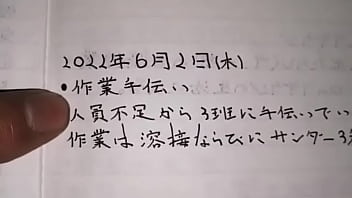 2022年6月2日(木)
・作業手伝い
人員不足から3班に手伝ってい
作業は溶接ならびにサンダー3